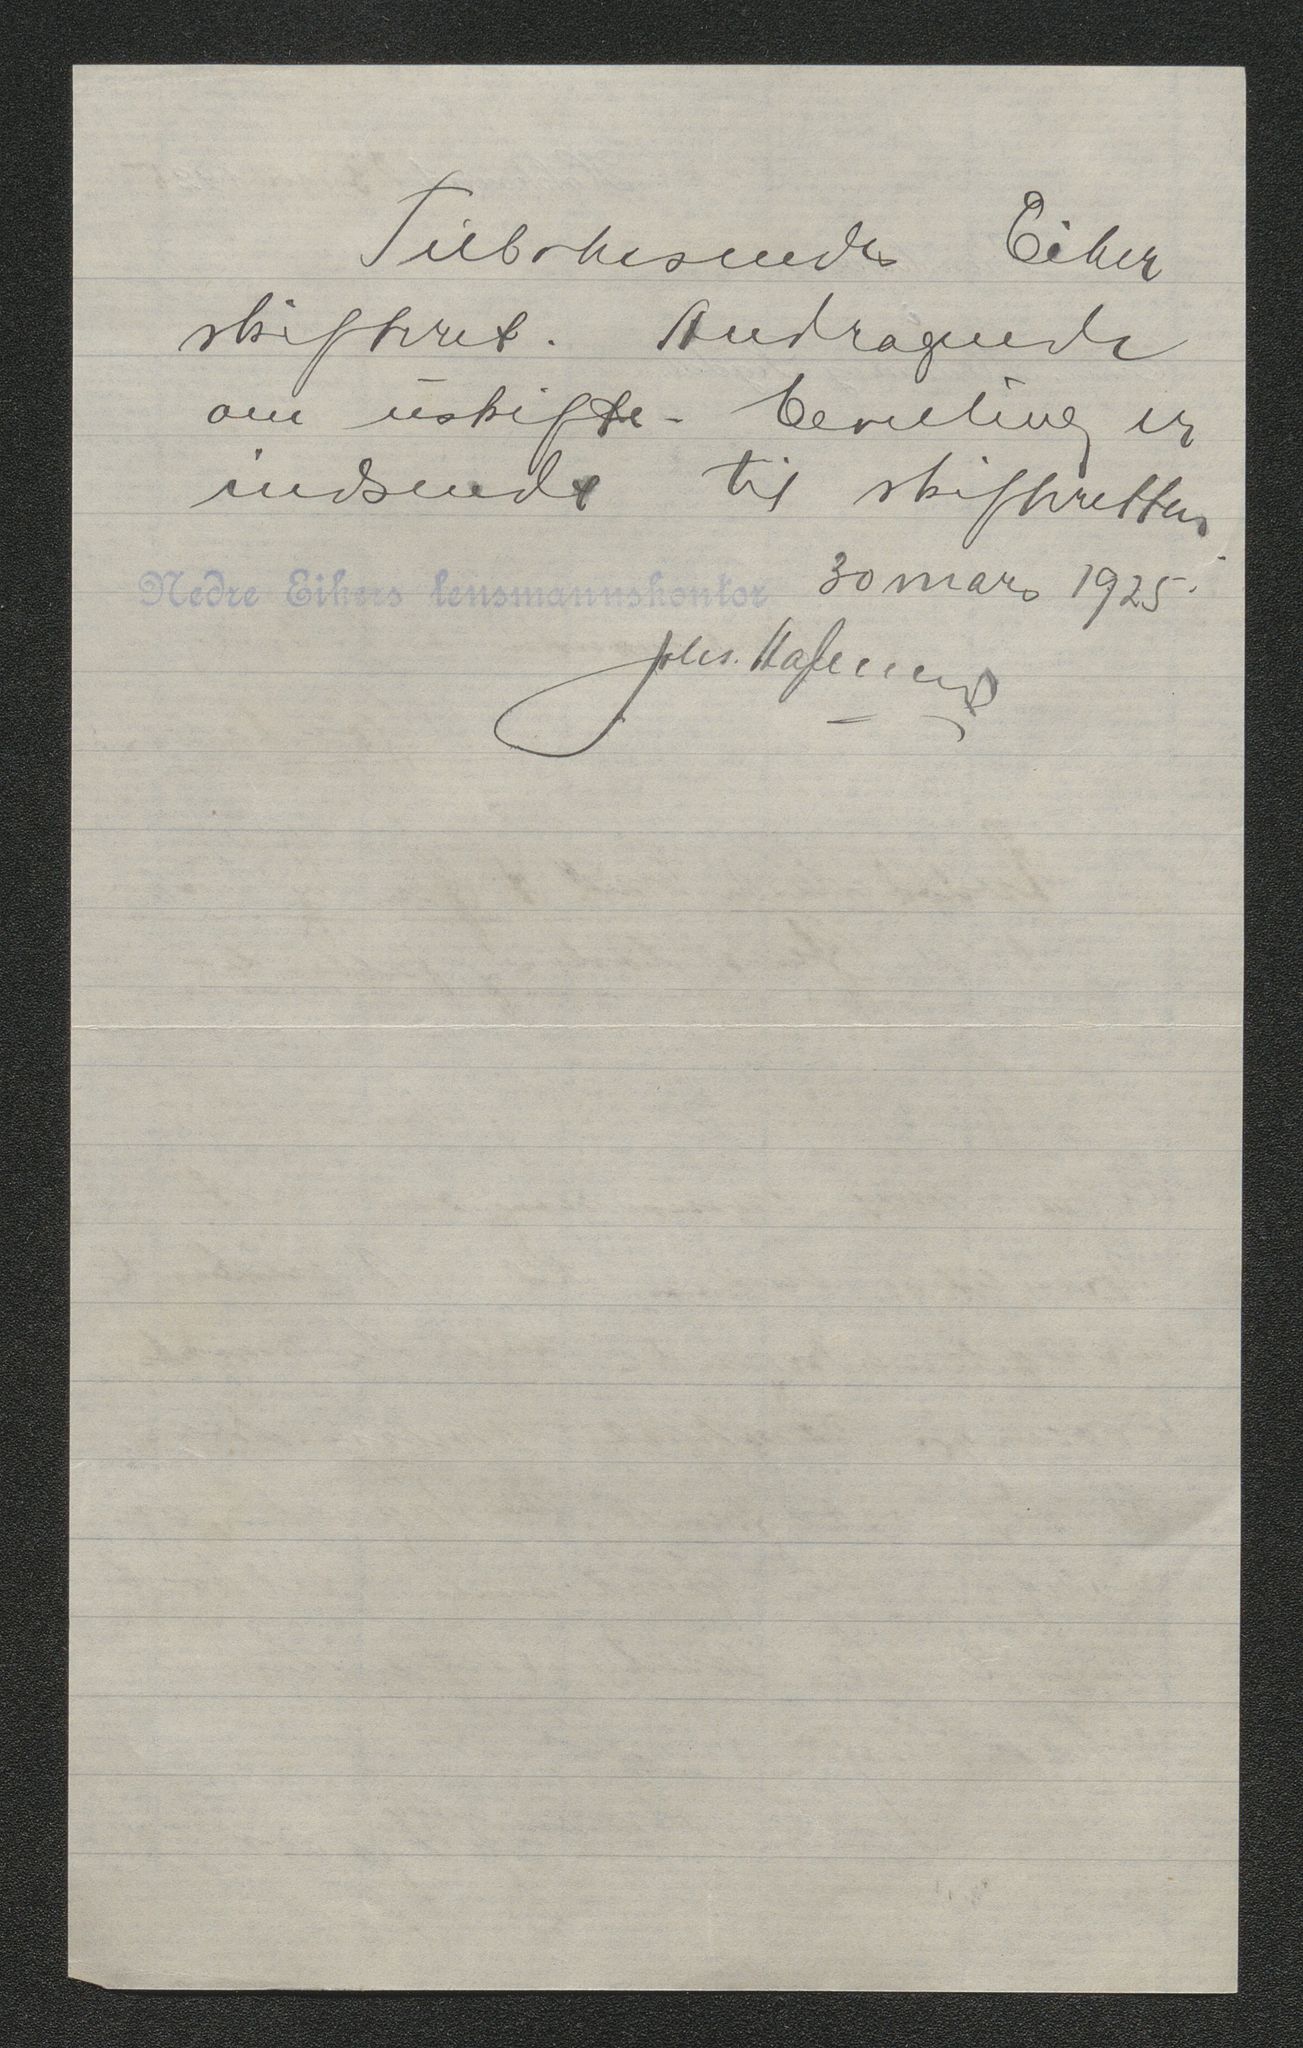 Tilbakesendes Eiker
skifteret. Andragende
om uskifte-bevilling er
indsendt til skifteretten.
Nedre Eikers lensmannskontor 30 mars 1925.
Johs.